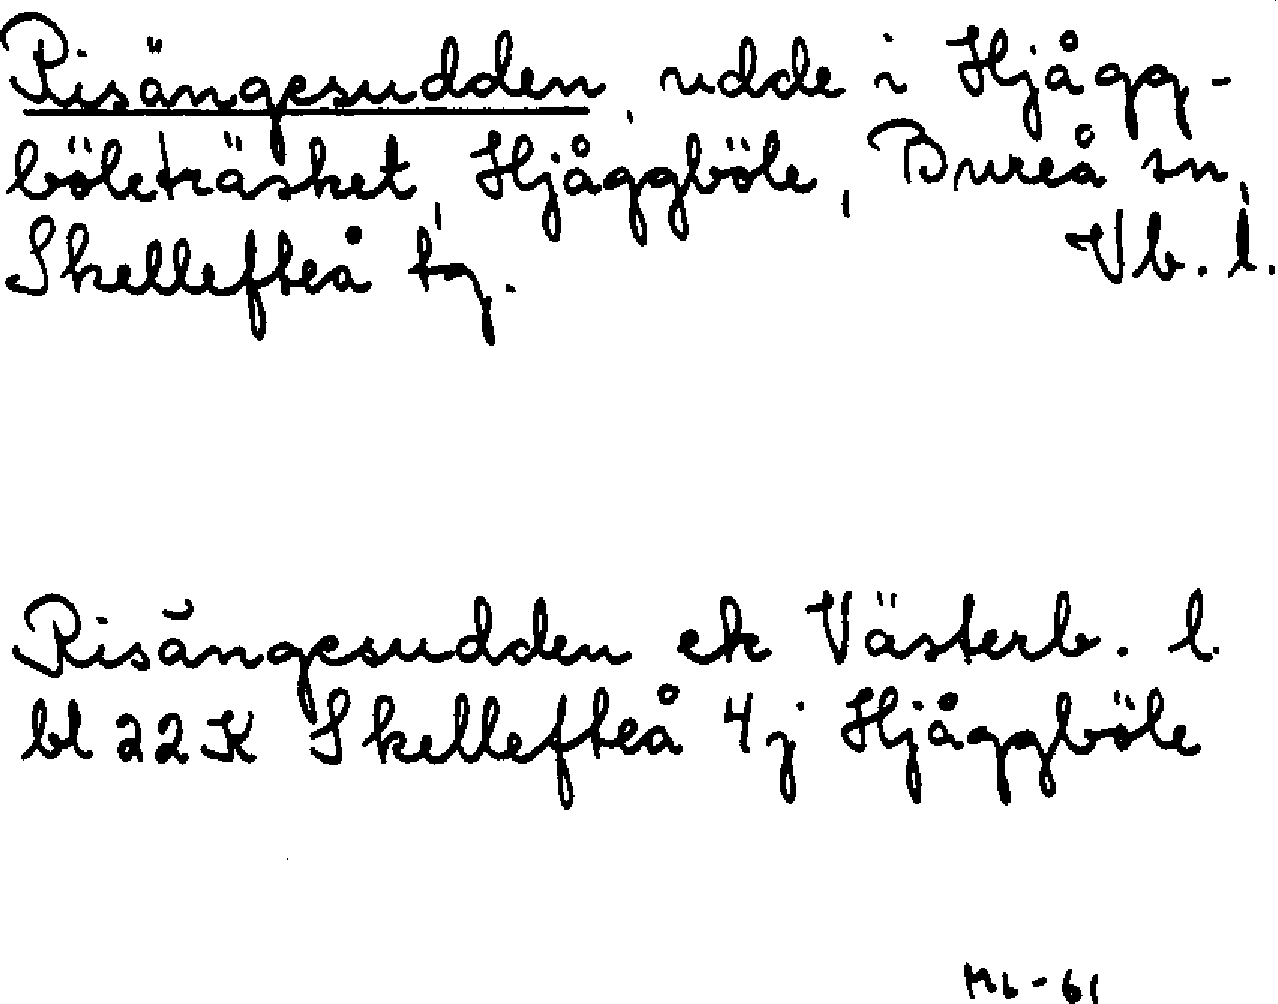 Risängesudden, udde i Hjågg-
böleträsket, Hjåggböle, Bureå sn,
Skellefteå tg. Vb. l.
Risängesudden ek Västerb. l.
bl 22K Skellefteå 4j Hjåggböle
ML-61